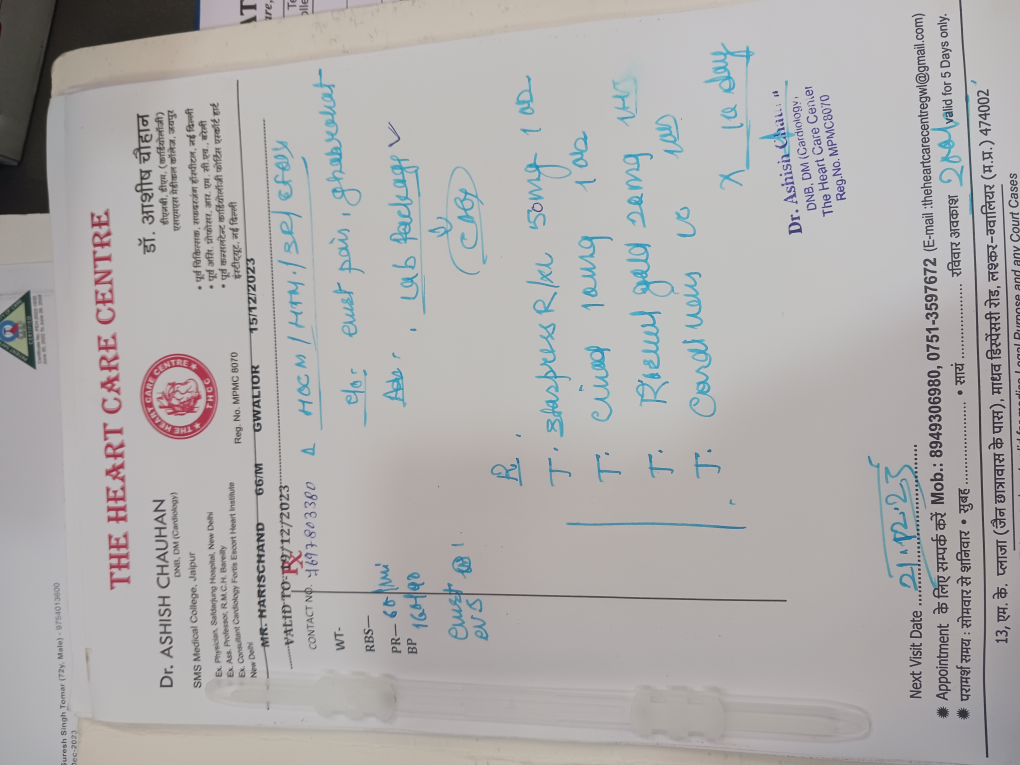 Suresh Singh Tomar (72y, Male) - 9754013600
Dec-2023
THE HEART CARE CENTRE
Dr. ASHISH CHAUHAN
DNB, DM (Cardiology)
SMS Medical College, Jaipur
• Ex. Physician, Safdarjung Hospital, New Delhi
• Ex. Ass. Professor, R.M.C.H. Bareilly
• Ex. Consultant Cardiology Fortis Escort Heart Institute
New Delhi
THE HEART CARE CENTRE
THCC
Reg. No. MPMC 8070
डॉ. आशीष चौहान
डीएनबी, डीएम. (कार्डियोलॉजी)
एसएमएस मेडीकल कॉलेज, जयपुर
• पूर्व चिकित्सक, सफदरजंग हॉस्पीटल, नई दिल्ली
• पूर्व असि. प्रोफेसर, आर. एम. सी. एच., बरेली
• पूर्व कन्सलटेन्ट कार्डियोलॉजी फोर्टिस एस्कॉर्ट हार्ट
इंस्टीट्यूट, नई दिल्ली
MR. HARISCHAND 66/M GWALIOR 15/12/2023
VALID TO-19/12/2023
Rx
CONTACT NO. :1697803380
Δ HOCM / HTN / SR /
WT-
c/o: chest pain, ghabrahat
RBS-
Adv. Lab Package ✓
PR- 60/mi
BP 160/90
(CAG)
chest
R.
T. Starpress R/XL 50mg 1 OD
T. Cinod 10mg 1 OD
T. gold 20mg HS
T. Cardi
X 10 day
Dr. Ashish Chauhan
DNB, DM (Cardiology,
The Heart Care Center
Reg.No. MPMC8070
Next Visit Date 21.12.23
Valid for 5 Days only.
✹ Appointment के लिए सम्पर्क करें Mob.: 8949306980, 0751-3597672 (E-mail :theheartcarecentregwl@gmail.com)
✹ परामर्श समय : सोमवार से शनिवार • सुबह • सायं रविवार अवकाश
13, एम. के. प्लाजा (जैन छात्रावास के पास), माधव डिस्पेंसरी रोड, लश्कर-ग्वालियर (म.प्र.) 474002
Legal Purpose and any Court Cases